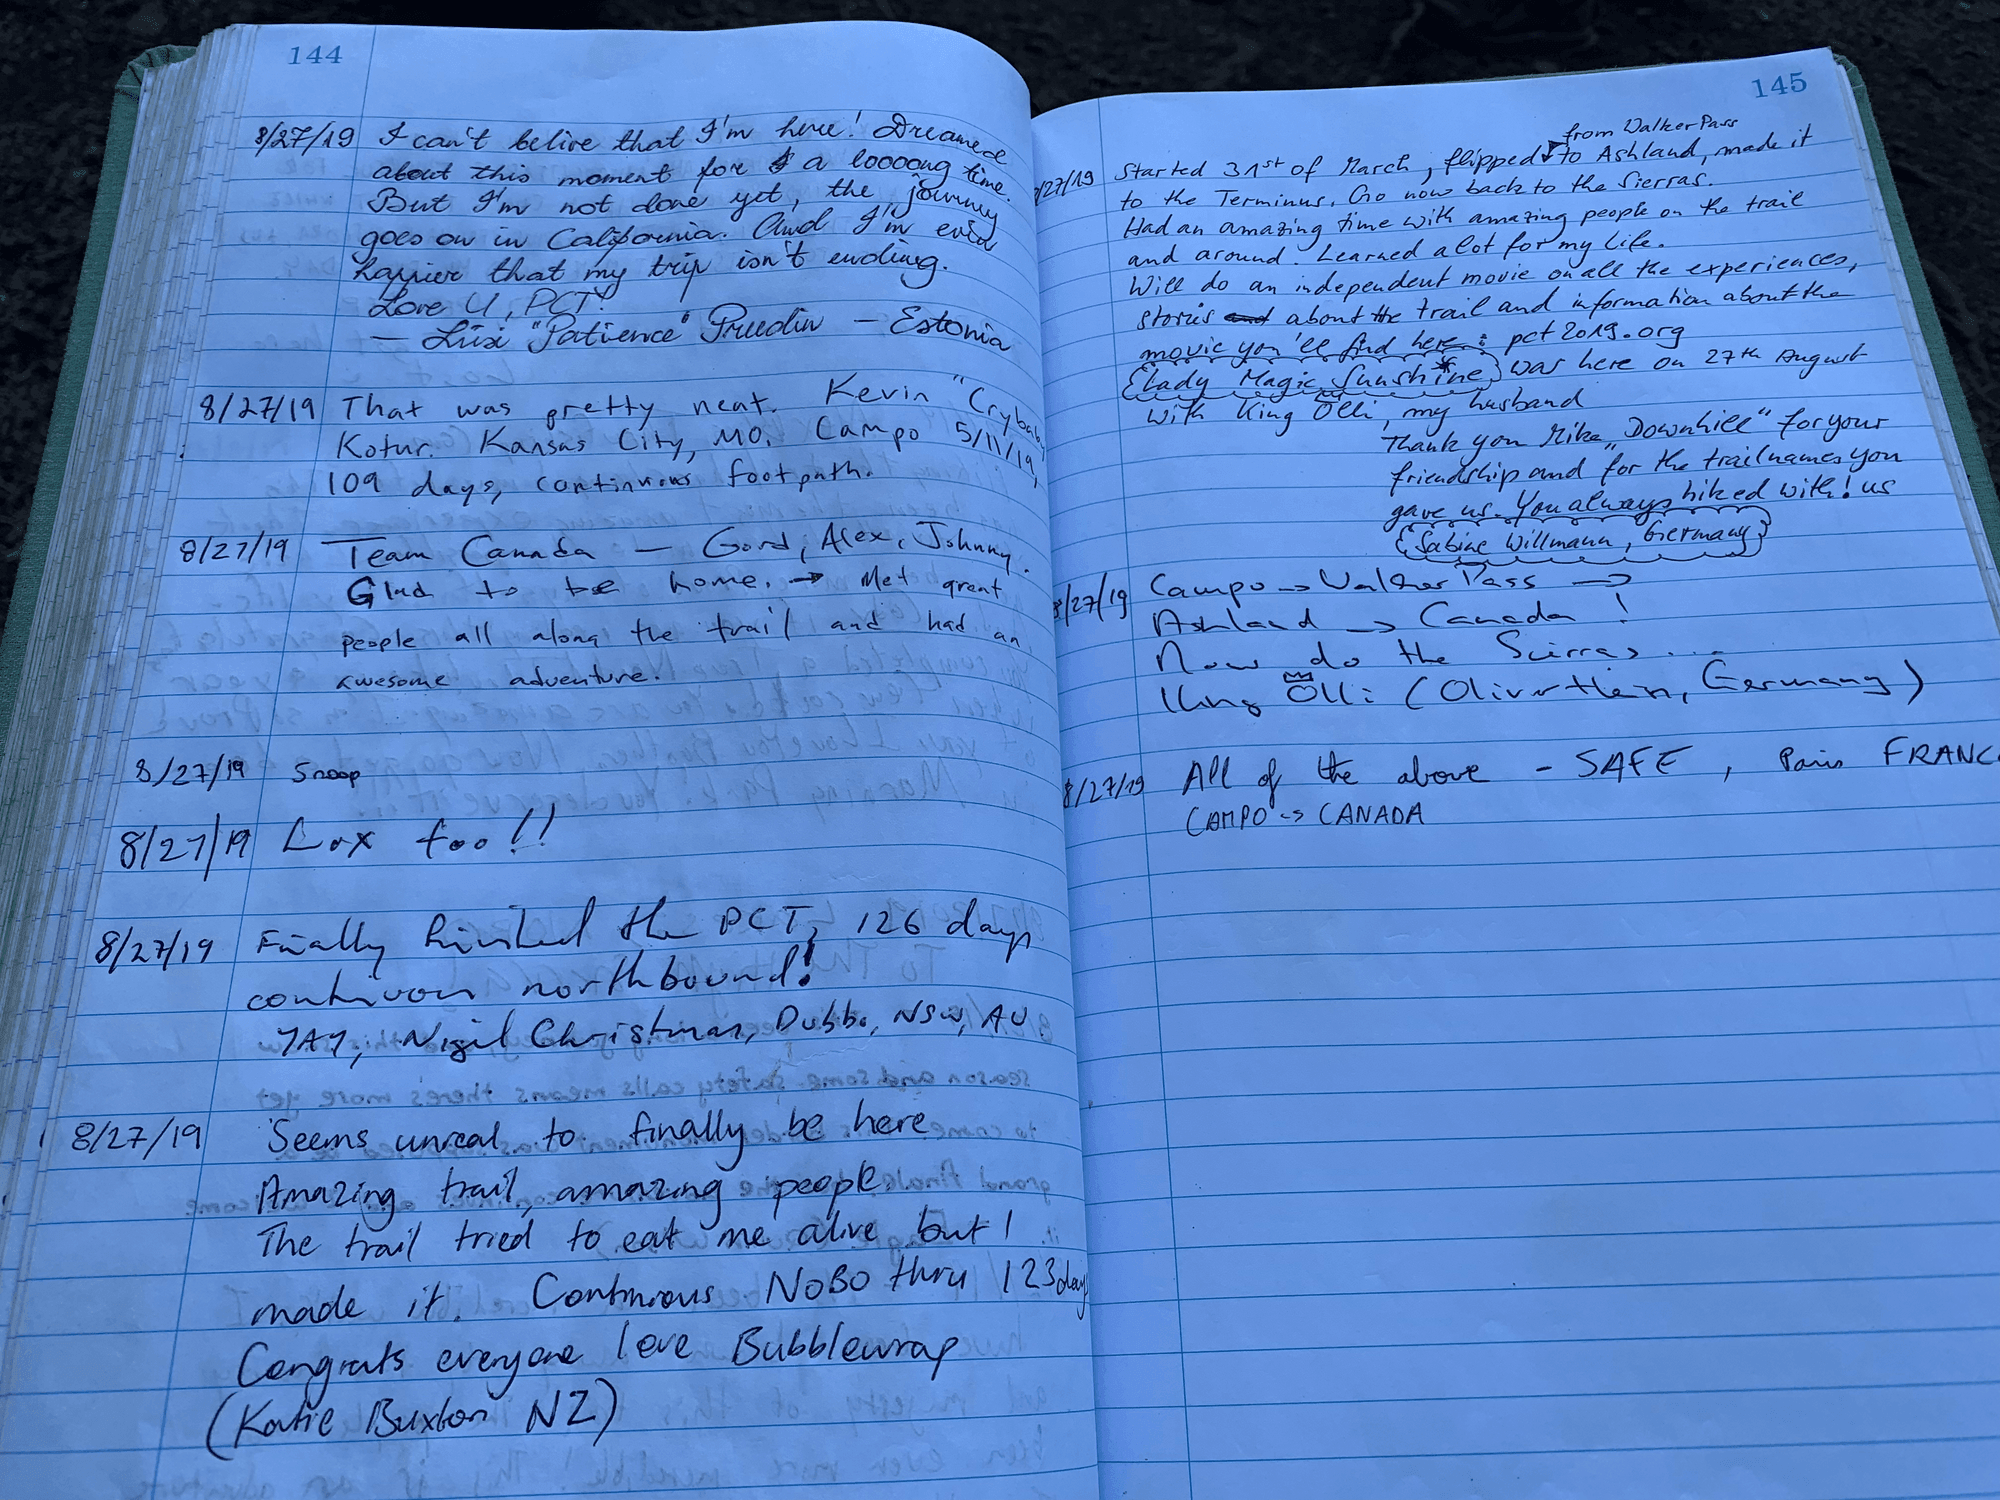 144
8/27/19 I can't belive that I'm here! Dreamed
about this moment for a loooong time.
But I'm not done yet, the journey
goes on in California. And I'm even
happier that my trip isn't ending.
Love U, PCT!
— "Patience" — Estonia
8/27/19 That was pretty neat. Kevin "Crybaby"
Kotur. Kansas City, MO. Campo 5/11/19,
109 days, continuous footpath.
8/27/19 Team Canada — Gord, Alex, Johnny.
Glad to be home. → Met great
people all along the trail and had an
awesome adventure.
8/27/19 Snoop
8/27/19 Lox foo!!
8/27/19 Finally finished the PCT, 126 days
continuous northbound!
YAY, Nigil Christman, Dubbo, NSW, AU
8/27/19 Seems unreal to finally be here
Amazing trail, amazing people.
The trail tried to eat me alive but I
made it. Continuous NOBO thru 123 days
Congrats everyone love Bubblewrap
(Katie Buxton NZ)
145
from Walker Pass
8/27/19 Started 31st of March, flipped to Ashland, made it
to the Terminus. Go now back to the Sierras.
Had an amazing time with amazing people on the trail
and around. Learned a lot for my life.
Will do an independent movie on all the experiences,
stories about the trail and information about the
movie you'll find here: pct2019.org
Lady Magic Sunshine was here on 27th August
with King Ölli, my husband
Thank you Mike „Downhill" for your
friendship and for the trailnames you
gave us. You always hiked with! us
Sabine Willmann, Germany
8/27/19 Campo → Walker Pass →
Ashland → Canada!
Now do the Sierras...
King Ölli (Oliver Hein, Germany)
8/27/19 All of the above - SAFE, Paris FRANC
CAMPO → CANADA